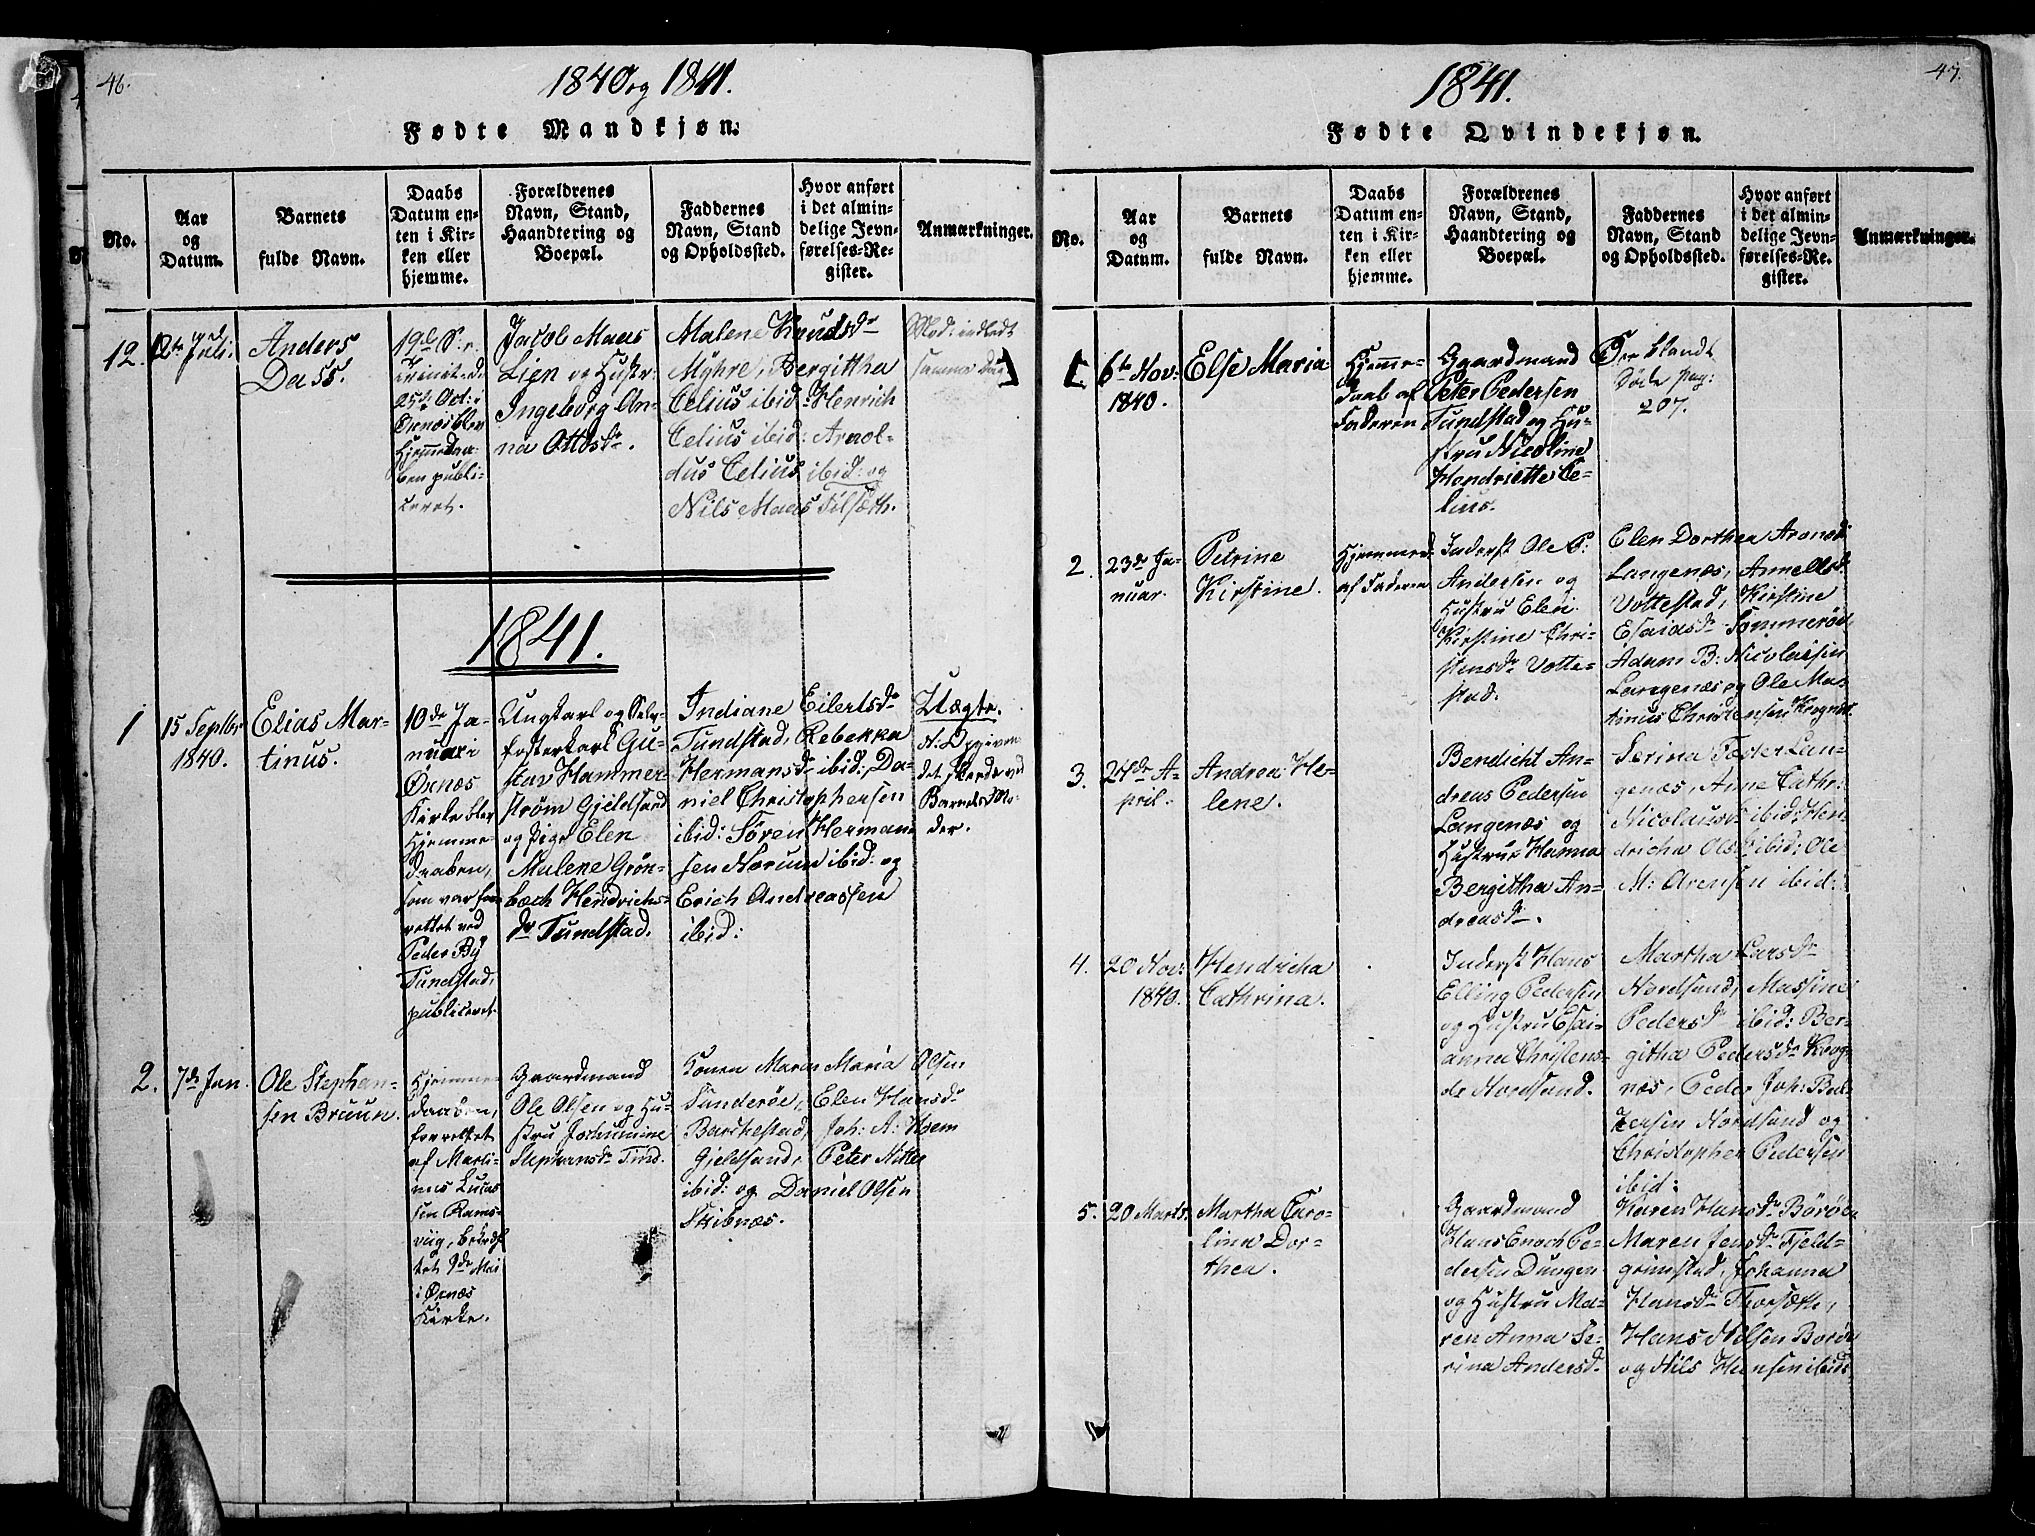 46.
1840 og 1841.
Fødte Mandkjøn.
No.
Aar
og
Datum.
Barnets
fulde Navn.
Daabs
Datum en-
ten i Kir-
ken eller
hjemme.
Forældrenes
Navn, Stand,
Haandtering og
Boepæl.
Faddernes
Navn, Stand
og Opholdssted.
Hvor anført
i det almin-
delige Jevn-
førelses-Re-
gister.
Anmærkninger.
12.
12te Juli.
Anders
Dass.
19de S: e.
Trinit: d.
25de Oct: i
Øxnæs blev
Hjemmedaa-
ben publi-
ceret.
Jacob Maas
Lien og Hustr:
Ingeborg An-
na Ottosdr.
Malene Knudsdr
Myhre, Bergittha
Celius ibid: Henrich
Celius ibid: Arnol-
dus Celius ibid: og
Nils Maas Tilsæth.
Mod: indledt
samme Dag
1841.
1
15 Septbr
1840.
Elias Mar-
tinus.
10de Ja-
nuari
Øxnæs
Kirke blev
Hjemme-
daaben,
som var for-
rettet ved
Peder By
Tundstad,
publiceret.
Ungkarl og Selv-
fosterkarl Gu-
stav Hammer-
strøm Gjeldsand
og Pige Elen
Malene Grøn-
bech Hendrichs-
dr Tundstad.
Indiane Eilertsdr
Tundstad, Rebekka
Hermansdr ibid; Da-
niel Christophersen
ibid: Søren Herman-
sen Horum ibid: og
Erich Andreassen
ibid:
Uægte.
N: Opgiven-
det skeede ved
Barnets Mo-
der.
2.
7de Jan.
Ole Stephan-
sen Bruun.
Hjemme-
daaben,
forrettet
af Marti-
nus Lucas
sen Rams-
viig, bekræf-
tet 9de Mai
i Øxnæs
Kirke.
Gaardmand
Ole Olsen og Hu-
stru Johannine
Stephansdr Tind.
Konen Maren Maria Olsen
Sanderøe, Elen Hansdr
Barkestad, Joh: A: Hoem
Gjeldsand, Peter Nitter
ibid: og Daniel Olsen
Skibnæs.
47.
1841.
Fødte Qvindekjøn.
No.
Aar
og
Datum.
Barnets
fulde Navn.
Daabs
Datum en-
ten i Kir-
ken eller
hjemme.
Forældrenes
Navn, Stand,
Haandtering og
Boepæl.
Faddernes
Navn, Stand
og Opholdssted.
Hvor anført
i det almin-
delige Jevn-
førelses-Re-
gister.
Anmærkninger.
1.
6te Nov:
1840.
Else Maria
Hjemme-
daab af
Faderen
Gaardmand
Peter Pedersen
Tundstad og Hu-
stru Nicoline
Hendriette Ce-
lius.
See blandt
Døde pag:
207.
2.
23de Ja-
nuar.
Petrine
Kirstine.
Hjemmed:
af Faderen
Inderst Ole P:
Andersen og
Hustru Elen
Kirstine Chri-
stensdr Votte-
stad.
Elen Dorthea Aronsd:
Langenæs, Anne Olsd:
Vottestad, Kirstine
Esaiasdr Sommerød,
Adam B: Nicolaisen
Langenæs og Ole Mar-
tinus Christensen Kragnæs.
3.
24de A-
pril.
Andrea He-
lene.
Bendicht An-
dreas Pedersen
Langenæs og
Hustrue Hanna
Bergitha An-
dreasdr.
Serina Peder Lan-
genæs, Anne Cathr:
Nicolausdr ibid: Hen-
dricha Olsdr ibid: Ole
M: Arensen ibid:
4.
20 Nov:
1840.
Hendricha
Cathrina.
Inderst Hans
Elling Pedersen
og Hustru Esai-
anna Christens-
dr Nordsand.
Martha Larsdr
Nordsand, Massine
Pedersdr ibid: Ber-
githa Pedersdr Krog-
næs, Peder Joh: Bal-
zersen Nordsand og
Christopher Pedersen
ibid:
5.
20 Marts.
Martha Caro-
lina Dor-
thea.
Gaardmand
Hans Enoch Pe-
dersen Dungan
og Hustru Ma-
ren Anna Se-
rina Andersd.
Karen Hansdr Børøen
Maren Jensdr Fjeld-
grimstad, Johanna
Hansdr Thorsæth,
Hans Nilsen Børøe
og Nils Hansen ibid: